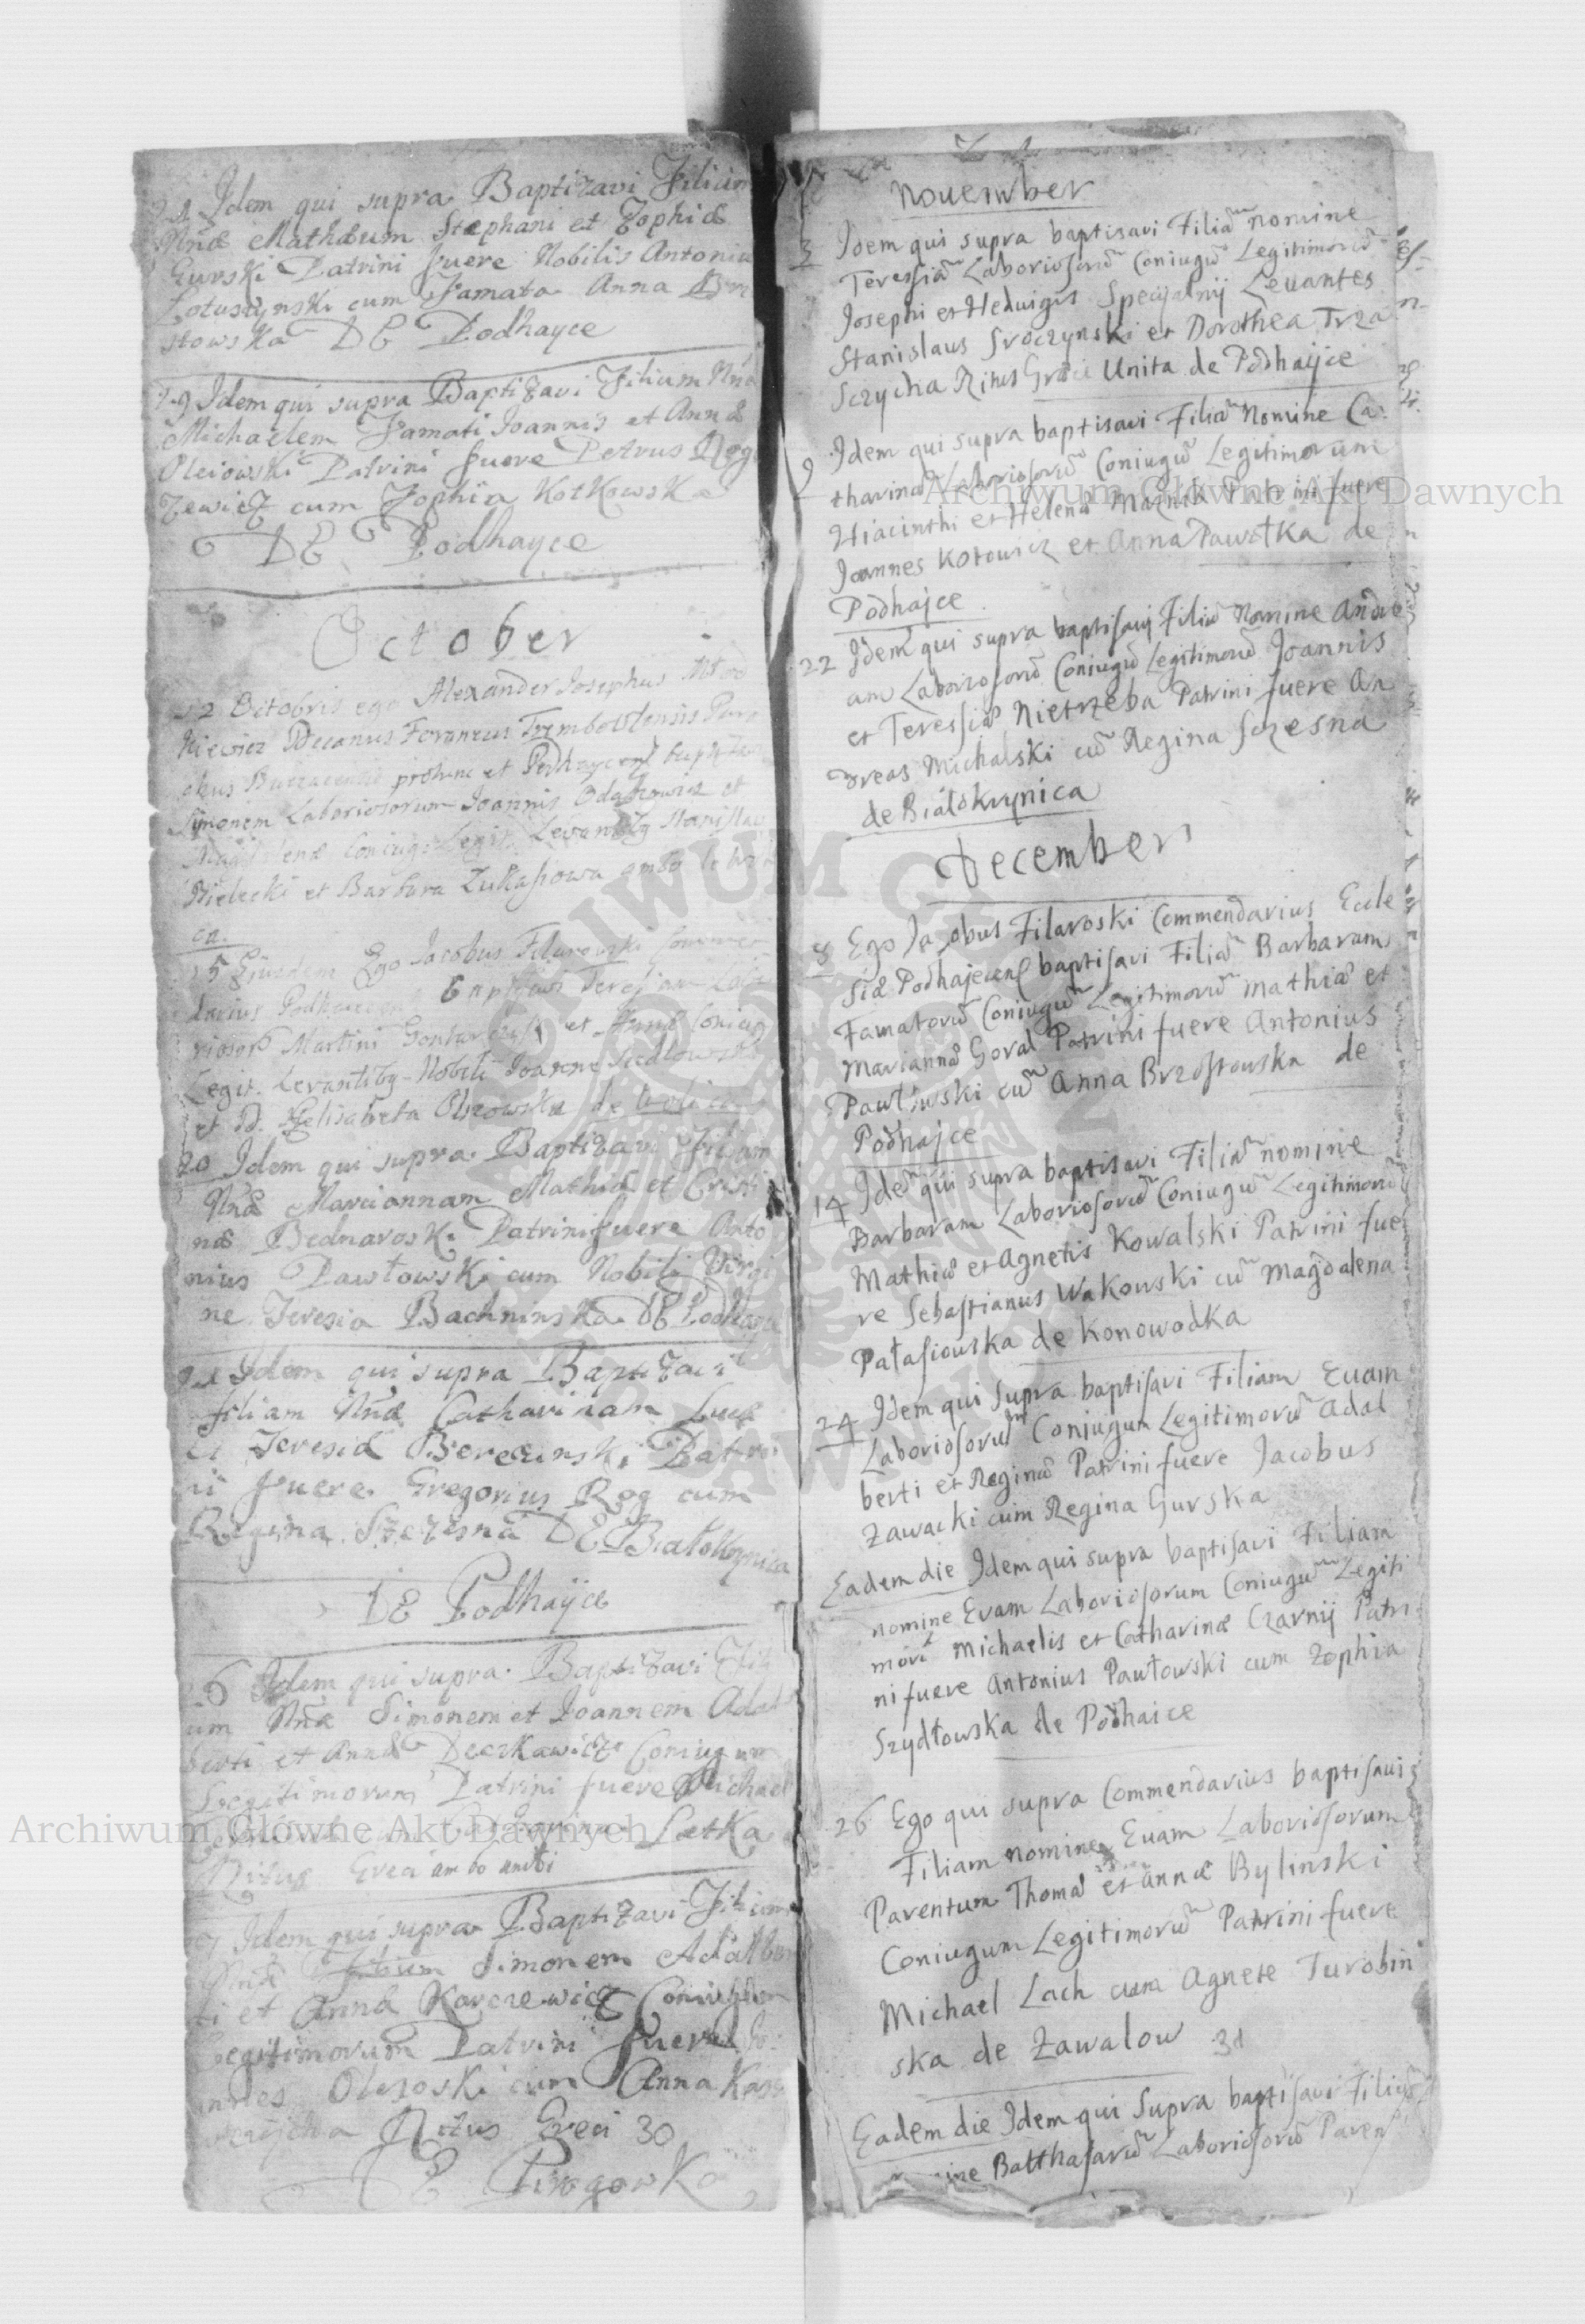 21 Idem qui supra Baptizavi Filium
Nñæ Mathæum Stephani et Zophiæ
Gurski Patrini fuere Nobilis Antoniu
Lotustynski cum Famata Anna Brz
stowska DE Podhayce
29 Idem qui supra Baptizavi Filium Nñæ
Michaelem Famati Joannis et Annæ
Oleiowski Patrini fuere Petrus
zewicz cum Zophia Kotkowska
DE Podhayce
October
12 Octobris ego Alexander Josephus
kiewicz Decanus Foraneus Trembowlensis Paro
chus prohunc et
Simonem Laboriosorum Joannis et
Magdalenæ Coniug: Legit. Levantibg Stanislao
Bielecki et Barbara Łukasiowa ambo
ca.
15 Ejusdem Ego Jacobus Filarowski Commen
darius baptisavi Teresiam Labo
riosorũ Martini et Annæ Coniug
Legit. Levantibg Nobili Joanne Siedlowski
et D. Helisabeta Olszowska de
20 Idem qui supra Baptizavi Filiam
Nñæ Mariannam Mathiæ et Cristi
næ Bednarosk. Patrini fuere Anto
nius Pawłowski cum Nobili Virgi
ne Teresia Bachninska DE Podhayce
21 Idem qui supra Baptizavi
filiam Nñæ Catharinam Lucæ
et Teresiæ Berezinski Patri
ni fuere Gregorius Rog cum
Regina Szczesna DE Białokrynica
DE Podhayce
26 Idem qui supra Baptizavi Fili
um Nñæ Simonem et Joannem Adal
berti et Annæ Deczkawicz Coniugum
Legitimorum Patrini fuere Michael
cum Łatka
Ritus Græci ambo uniti
Idem qui supra Baptizavi Filium
Nñæ Filium Simonem Adalber
ti et Annæ Karczewicz Coniugum
Legitimorum Patrini fuere Jo:
annes Olezoski cum Anna
Ritus Greci 30
DE
November
3 Idem qui supra baptisavi Filiã nomine
Teressiã Laboriosorũ Coniugũ Legitimorũ
Josephi et Heduigis Specyalnij Leuantes
Stanislaus Sroczynski et Dorothea Trza
sczycha Ritus Græci Unita de Podhaijce
9 Idem qui supra baptisavi Filiã Nomine Ca:
tharinã Laboriosorũ Coniugũ Legitimorum
Hiacinthi et Helenæ Patrini fuere
Joannes Kotowicz et Anna Pawołka de
Podhajce
22 Idem qui supra baptisavij Filiũ Nomine Andre
am Laboriosorũ Coniugũ Legitimorũ Joannis
et Teressiæ Nietrzeba Patrini fuere An
dreas Michalski cũ Regina Sczesna
de Białokrynica
December
8 Ego Jacobus Filaroski Commendarius Eccle
siæ Podhajecens baptisavi Filiã Barbaram
Famatorũ Coniugũ Legitimorũ Mathiæ et
Mariannæ Goral Patrini fuere Antonius
Pawłowski cũ Anna Brzostowska de
Podhajce
14 Idẽ qui supra baptisavi Filiã nomine
Barbaram Laboriosorũ Coniugũ Legitimorũ
Mathiæ et Agnetis Kowalski Patrini fue
re Sebastianus Wakowski cũ Magdalena
Pałasiouska de Konowodka
24 Idem qui Supra baptisavi Filiam Euam
Laboriosorũ Coniugum Legitimorũ Adal
berti et Reginæ Patrini fuere Jacobus
Zawacki cum Regina Gurska
Eadem die Idem qui supra baptisavi Filiam
nomine Evam Laboriosorum Coniugũ Legiti
morũ Michaelis et Catharinæ Czarnij Patri
ni fuere Antonius Pawłowski cum Zophia
Szydłowska de Podhaice
26 Ego qui supra Commendarius baptisaui
Filiam nomine Euam Laboriosorum
Parentum Thomæ et Annæ Bylinski
Coniugum Legitimorũ Patrini fuere
Michael Lach cum Agnete Turobin
ska de Zawalow 31
Eadem die Idem qui Supra baptisavi Filiũ
Balthasarũ Laboriosorũ Paren
Archiwum Główne Akt Dawnych
Archiwum Główne Akt Dawnych